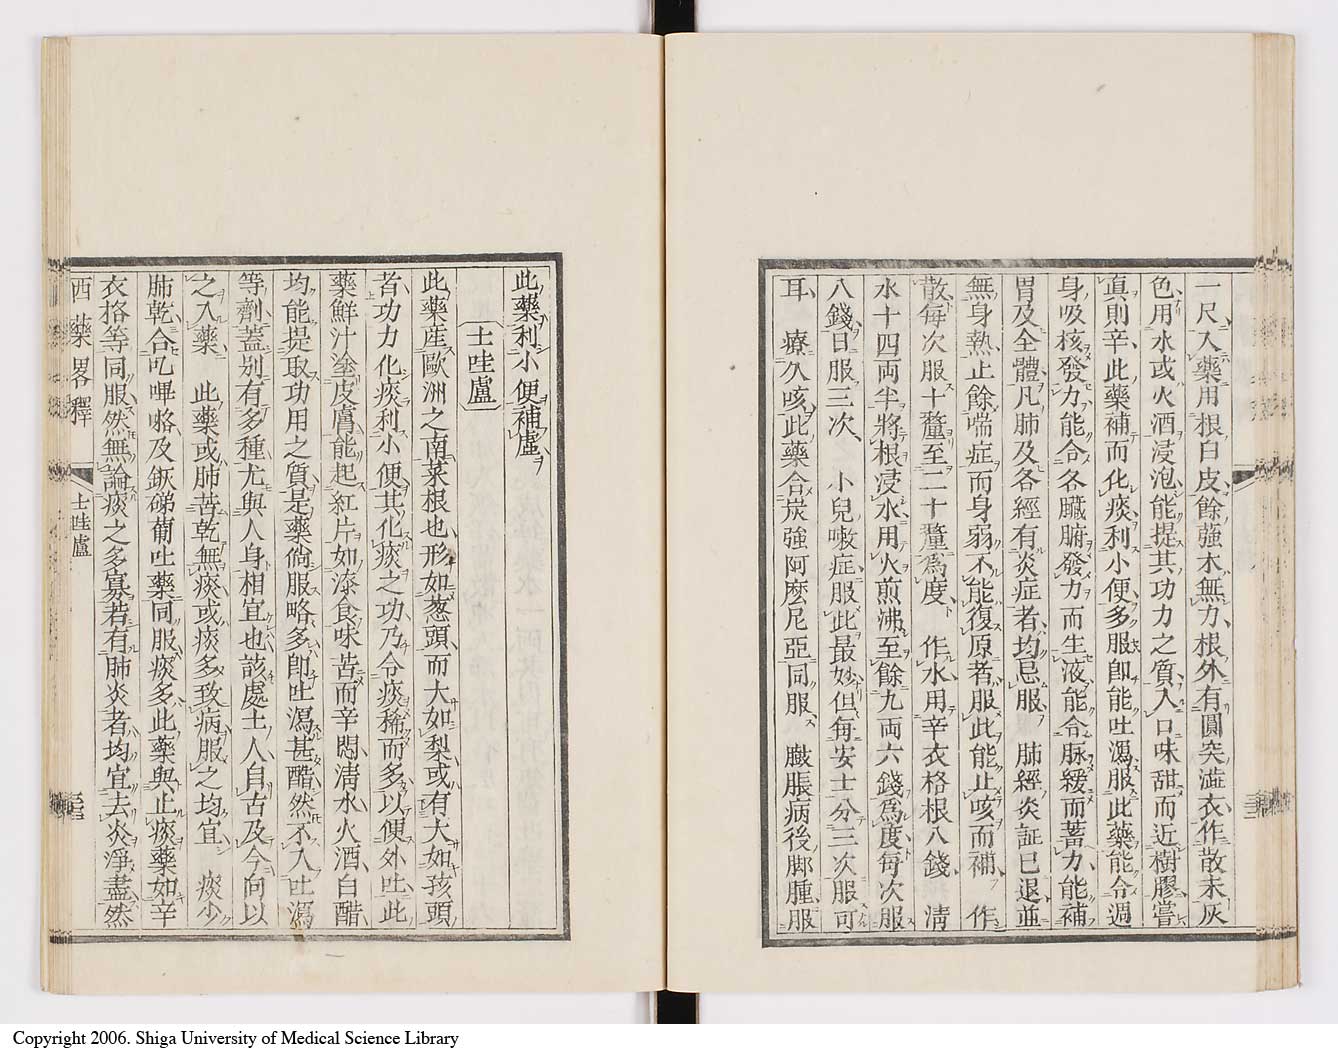 一尺入藥用根白皮餘強木無力根外有圓突澁衣作散末灰
色用水或火酒浸泡能提其功力之質入口味甜而近樹膠嘗
眞則辛此藥補而化痰利小便多服卽能吐瀉服此藥能令週
身吸核發力能令各臟腑發力而生液能令脉緩而蓄力能補
胃及全體凡肺及各經有炎症者均忌服 肺經炎証已退並
無身熱止餘喘症而身弱不能復原者服此能止咳而補 作
散每次服十釐至二十釐爲度 作水用辛衣格根八錢 淸
水十四両半將根浸水用火煎沸至餘九両六錢爲度每次服
八錢日服三次 小兒嗽症服此最妙但每安士分三次服可
耳 療久咳此藥合炭強阿麼尼亞同服 臌脹病後脚腫服
此藥利小便補虛
士哇盧
此藥産歐洲之南菜根也形如葱頭而大如梨或有大如孩頭
者功力化痰利小便其化痰之功乃令痰稀而多以便外吐此
藥鮮汁塗皮膚能起紅片如漆食味苦而辛悶淸水火酒白醋
均能提取功用之質是藥倘服略多卽吐瀉甚酷然不入吐瀉
等劑蓋别有多種尤與人身相宜也該處土人自古及今向以
之入藥 此藥或肺苦乾無痰或痰多致病服之均宜 痰少
肺乾合吃嗶咯及鈱硑葡吐藥同服痰多此藥與止痰藥如辛
衣格等同服然無論痰之多寡若有肺炎者均宜去炎淨盡然
西藥畧釋
士哇盧
Copyright 2006. Shiga University of Medical Science Library